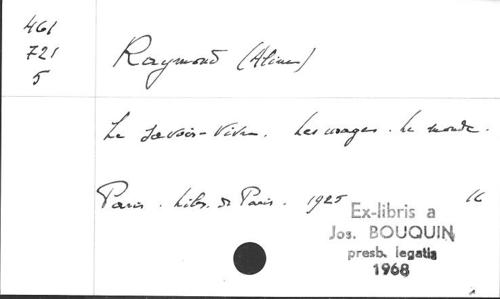 461
721
5
Raymond (Aline)
Le Savoir-Vivre. Les usages. Le monde.
Paris. Libr. de Paris. 1925 16
Ex-libris a
Jos. BOUQUIN
presb. legatis
1968